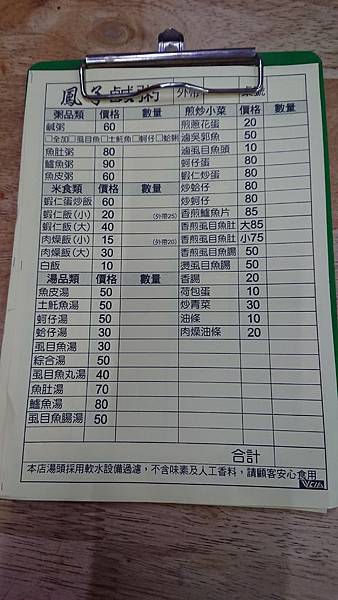 鳳子鹹粥 外帶 桌號
粥品類 價格 數量
鹹粥 60
□全加□虱目魚□土魠魚□蚵仔□蛤蜊
魚肚粥 80
鱸魚粥 90
魚皮粥 60
米食類 價格 數量
蝦仁蛋炒飯 60
蝦仁飯(小) 20 (外帶25)
蝦仁飯(大) 40
肉燥飯(小) 15 (外帶20)
肉燥飯(大) 30
白飯 10
湯品類 價格 數量
魚皮湯 50
土魠魚湯 50
蚵仔湯 50
蛤仔湯 30
虱目魚湯 30
綜合湯 50
虱目魚丸湯 40
魚肚湯 70
鱸魚湯 80
虱目魚腸湯 50
煎炒小菜 價格 數量
煎蔥花蛋 20
滷吳郭魚 50
滷虱目魚頭 10
蚵仔蛋 80
蝦仁炒蛋 80
炒蛤仔 80
炒蚵仔 80
香煎鱸魚片 85
香煎虱目魚肚 大85
香煎虱目魚肚 小75
香煎虱目魚腸 50
燙虱目魚腸 50
香腸 20
荷包蛋 10
炒青菜 30
油條 10
肉燥油條 20
合計
本店湯頭採用軟水設備過濾，不含味素及人工香料，請顧客安心食用